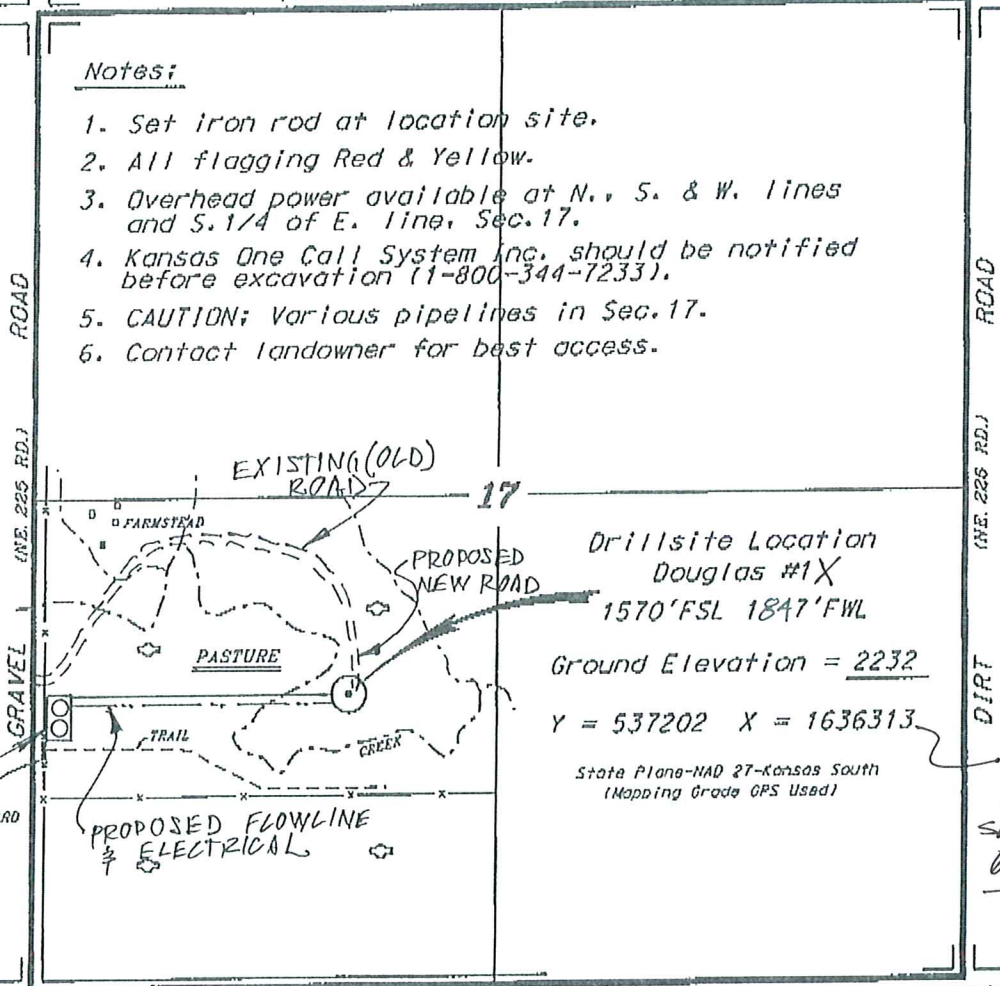 Notes:
1. Set iron rod at location site.
2. All flagging Red & Yellow.
3. Overhead power available at N., S. & W. lines
and S.1/4 of E. line, Sec.17.
4. Kansas One Call System Inc. should be notified
before excavation (1-800-344-7233).
5. CAUTION: Various pipelines in Sec.17.
6. Contact landowner for best access.
ROAD
(NE. 225 RD.)
GRAVEL
ROAD
(NE. 226 RD.)
DIRT
EXISTING (OLD)
ROAD
17
FARMSTEAD
PROPOSED
NEW ROAD
PASTURE
TRAIL
CREEK
PROPOSED FLOWLINE
& ELECTRICAL
Drillsite Location
Douglas #1X
1570'FSL 1847'FWL
Ground Elevation = 2232
Y = 537202 X = 1636313
State Plane-NAD 27-Kansas South
(Mapping Grade GPS Used)
RD